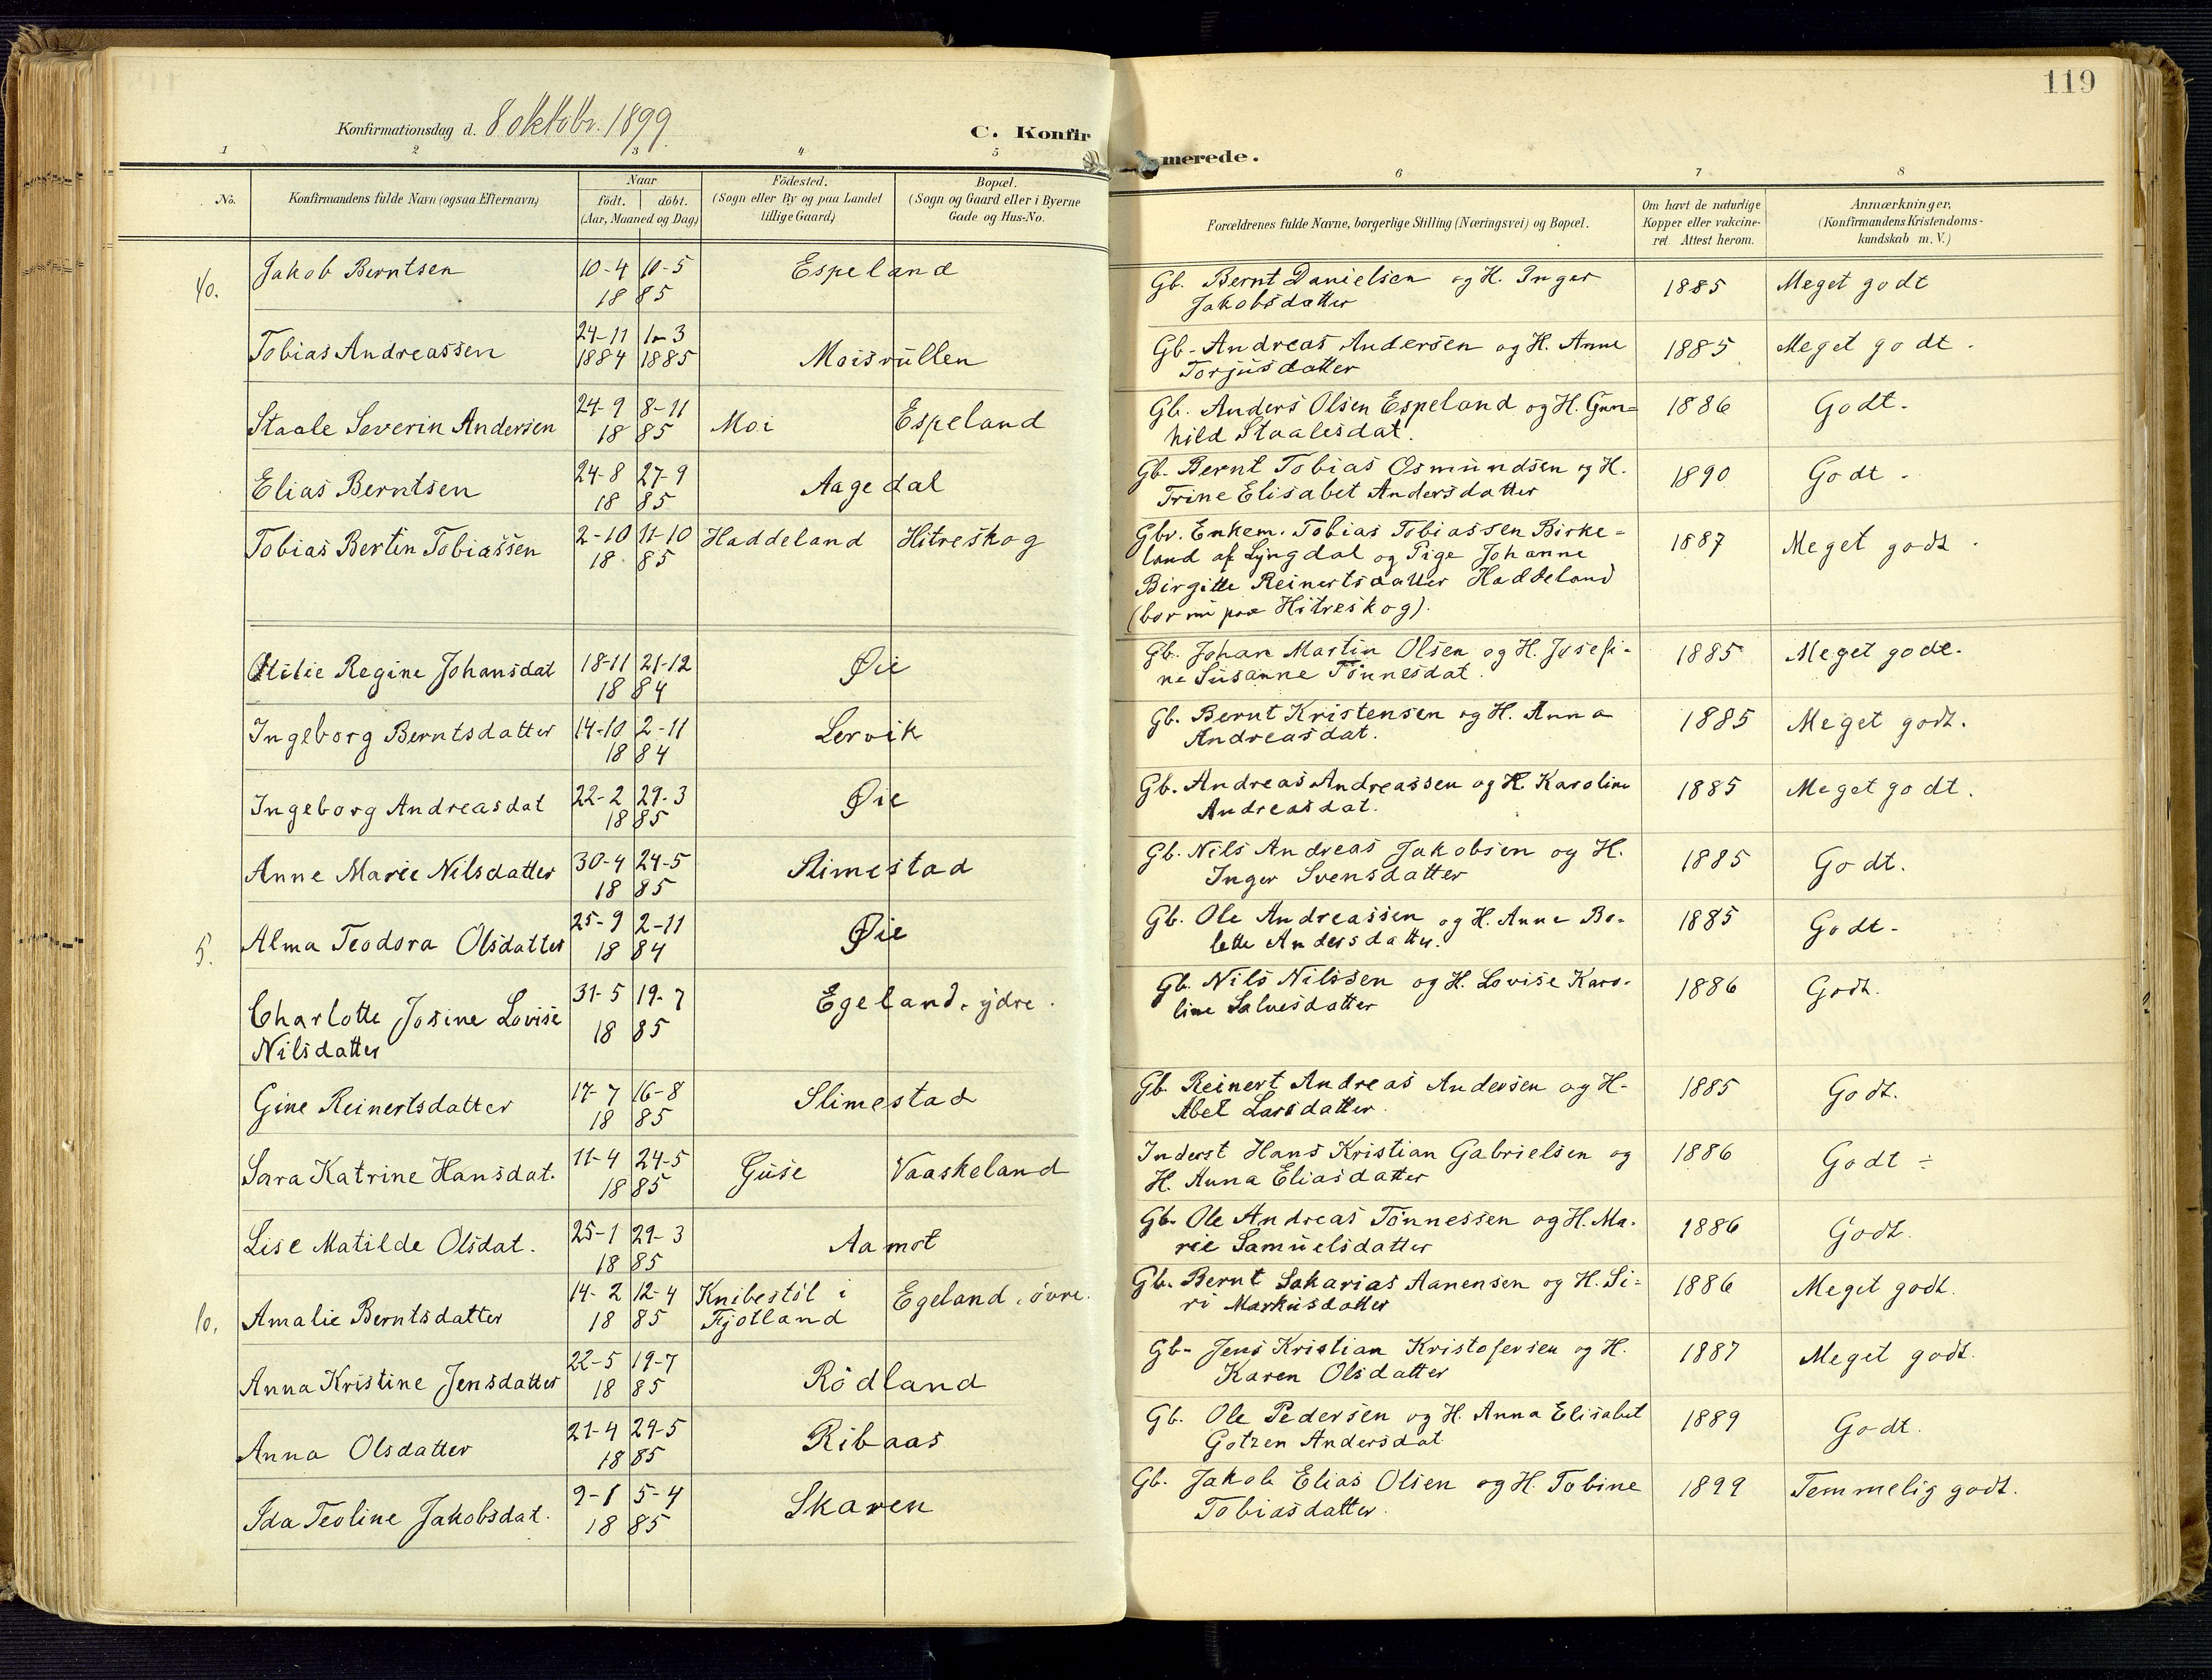 119
Konfirmationsdag d. 8 oktobr. 1899.
C. Konfirmerede.
1 2 3 4 5 6 7 8
No.
Konfirmandens fulde Navn (ogsaa Efternavn)
Naar
födt. döbt.
(Aar, Maaned og Dag)
Födested.
(Sogn eller By og paa Landet
tillige Gaard)
Bopæl.
(Sogn og Gaard eller i Byerne
Gade og Hus-No.
Forældrenes fulde Navne, borgerlige Stilling (Næringsvei) og Bopæl.
Om havt de naturlige
Kopper eller vakcine-
ret. Attest herom.
Anmærkninger,
(Konfirmandens Kristendoms-
kundskab m. V.)
40. Jakob Berntsen 10-4 10-5 Espeland Gb. Bernt Danielsen og H. Inger 1885 Meget godt
1885 Jakobsdatter
Tobias Andreassen 24-11 1-3 Moisrullen Gb. Andreas Andersen og H. Anne 1885 Meget godt.
1884 1885 Torjusdatter
Staale Severin Andersen 24-9 8-11 Moi Espeland Gb. Anders Olsen Espeland og H. Gun= 1886 Godt.
1885 hild Staalesdat.
Elias Berntsen 24-8 27-9 Aagedal Gb. Bernt Tobias Osmundsen og H. 1890 Godt.
1885 Trine Elisabet Andersdatter
Tobias Bertin Tobiassen 2-10 11-10 Haddeland Hitreskog Gbr. Enkem. Tobias Tobiassen Birke= 1887 Meget godt.
1885 land af Lyngdal og Pige Johanne
Birgitte Reinertsdatter Haddeland
(bor nu paa Hitreskog).
Otilie Regine Johansdat 18-11 21-12 Øie Gb. Johan Martin Olsen og H. Josefi- 1885 Meget godt.
1884 ne Susanne Tönnesdat.
Ingeborg Berntsdatter 14-10 2-11 Lervik Gb. Bernt Kristensen og H. Anna 1885 Meget godt.
1884 Andreasdat.
Ingeborg Andreasdat 22-2 29-3 Øie Gb. Andreas Andreassen og H. Karoline 1885 Meget godt.
1885 Andreasdat.
Anne Marie Nilsdatter 30-4 24-5 Slimestad Gb. Nils Andreas Jakobsen og H. 1885 Godt.
1885 Inger Svensdatter
5. Alma Teodora Olsdatter 25-9 2-11 Øie Gb. Ole Andreassen og H. Anne Bo- 1885 Godt.
1884 lette Andersdatter.
Charlotte Josine Lovise 31-5 19-7 Egeland, ydre. Gb. Nils Nilssen og H. Lovise Karo- 1886 Godt.
Nilsdatter 1885 line Salvesdatter
Gine Reinertsdatter 17-7 16-8 Slimestad Gb. Reinert Andreas Andersen og H. 1885 Godt.
1885 Abel Larsdatter.
Sara Katrine Hansdat. 11-4 24-5 Guse Vaaskeland Inderst Hans Kristian Gabrielsen og 1886 Godt ÷
1885 H. Anna Eliasdatter
Lise Matilde Olsdat. 25-1 29-3 Aamot Gb. Ole Andreas Tönnessen og H. Ma- 1886 Godt.
1885 rie Samuelsdatter
10. Amalie Berntsdatter 14-2 12-4 Knibestöl i Egeland, övre. Gb. Bernt Sakarias Aanensen og H. Si= 1886 Meget godt.
1885 Fjotland ri Markusdatter
Anna Kristine Jensdatter 22-5 19-7 Rödland Gb. Jens Kristian Kristofersen og H. 1887 Meget godt.
1885 Karen Olsdatter
Anna Olsdatter 21-4 29-5 Ribaas Gb. Ole Pedersen og H. Anna Elisabet 1889 Godt.
1885 Gotzen Andersdat
Ida Teoline Jakobsdat. 9-1 5-4 Skaren Gb. Jakob Elias Olsen og H. Tobine 1899 Temmelig godt.
1885 Tobiasdatter.